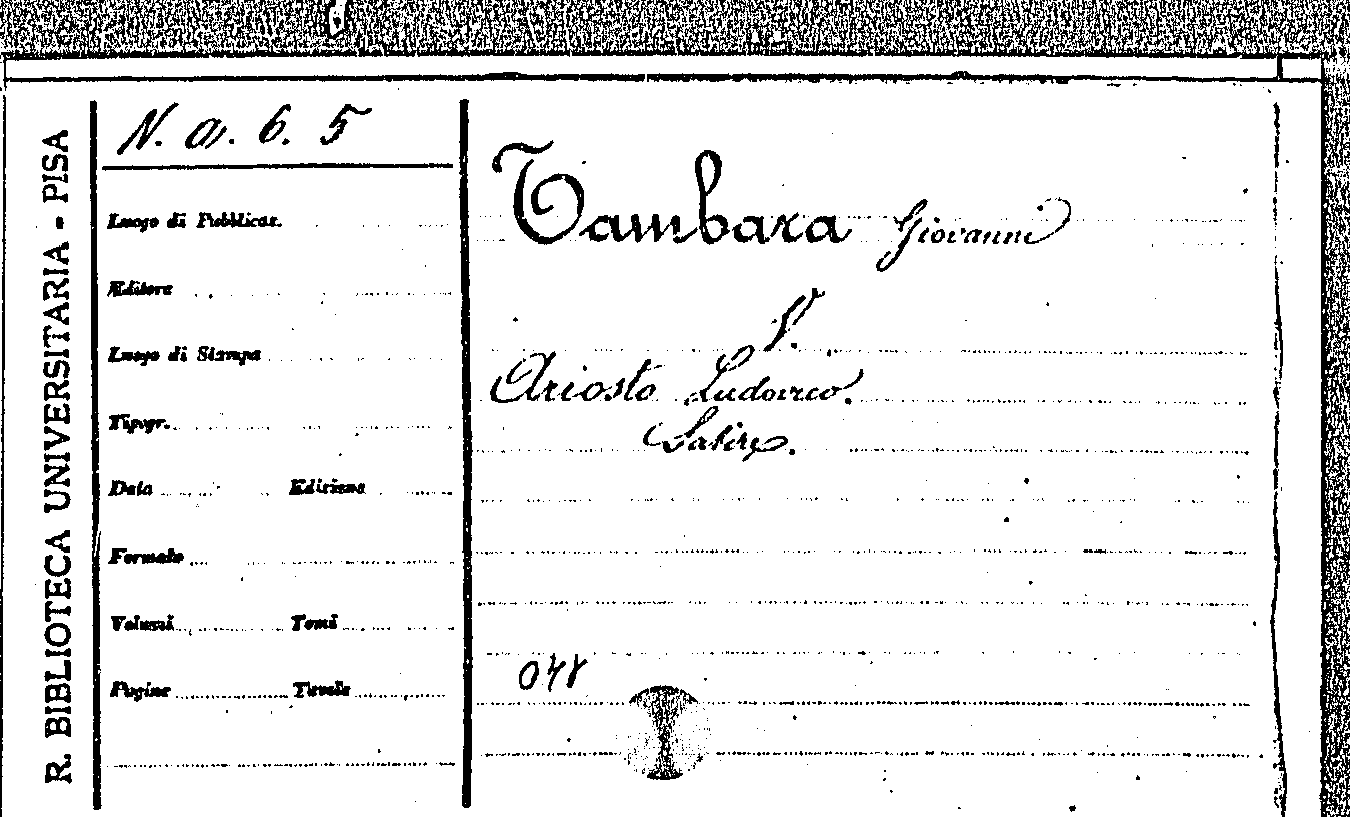 R. BIBLIOTECA UNIVERSITARIA - PISA
N. a. 6. 5
Luogo di Pubblicaz.
Editore
Luogo di Stampa
Tipogr.
Data Edizione
Formato
Volumi Tomi
Pagine Tavole
Tambara Giovanni
V.
Ariosto Ludovico.
Satire.
048